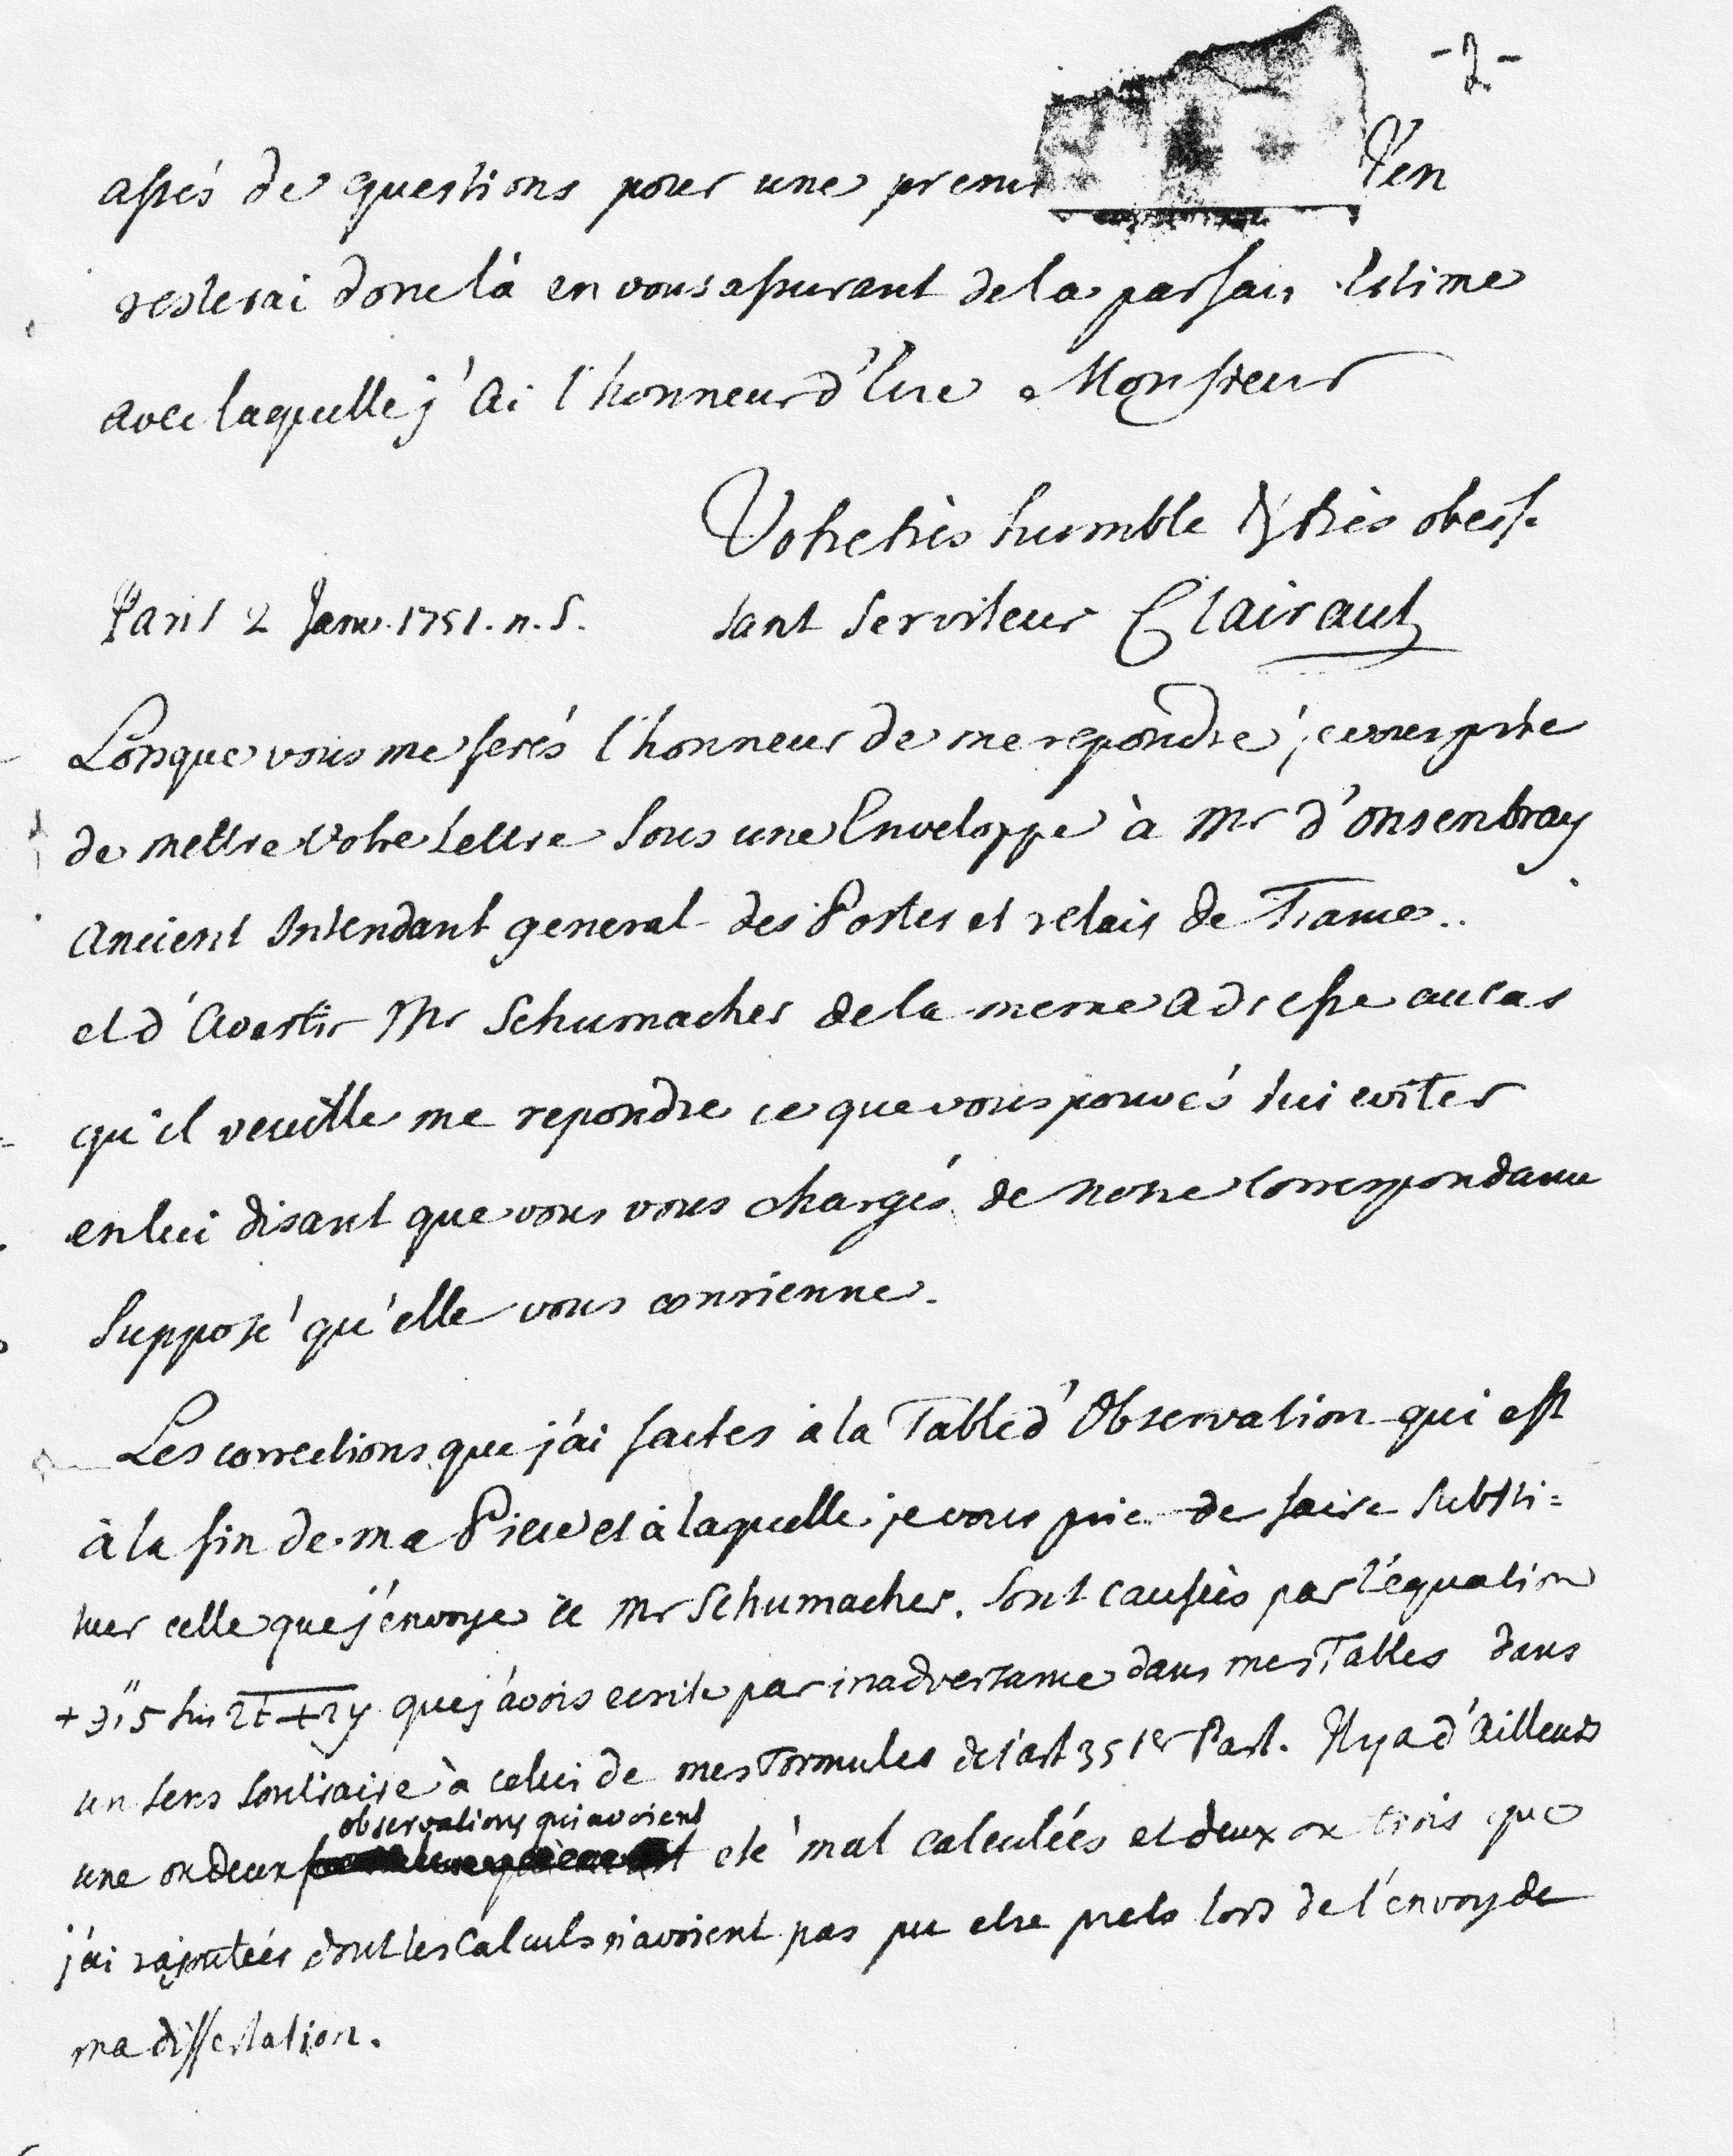 -2-
assés de questions pour une prem J'en
resterai donc là en vous assurant de la parfait Estime
avec laquelle j'ai l'honneur d'être Monsieur
Votre très humble & très obeis-
Paris 2 Janv. 1751. n. S. sant serviteur Clairaut
Lorsque vous me ferés l'honneur de me repondre, je vous prie
de mettre votre Lettre sous une Enveloppe à Mr d'onsenbray
Ancient Intendant general des Postes et relais de France..
et d'avertir Mr Schumacher de la meme adresse au cas
qu'il veuille me repondre ce que vous pouvés lui eviter
en lui disant que vous vous chargés de notre Correspondance
supposé qu'elle vous convienne.
Les corrections que j'ai faites à la Table d'Observation qui est
à la fin de ma Piece et à laquelle je vous prie de faire substi=
tuer celle que j'envoye à Mr Schumacher. sont causées par l'équation
+3",5 sin 2t+2y que j'avois ecrite par inadvertance dans mes Tables dans
un sens contraire à celui de mes Formules de l'art 35 1er Part. Il y a d'ailleurs
observations qui avoient
une ou deux eté mal calculées et deux ou trois que
j'ai rajoutées dont les Calculs n'avoient pas pu etre prets lors de l'envoy de
ma dissertation.